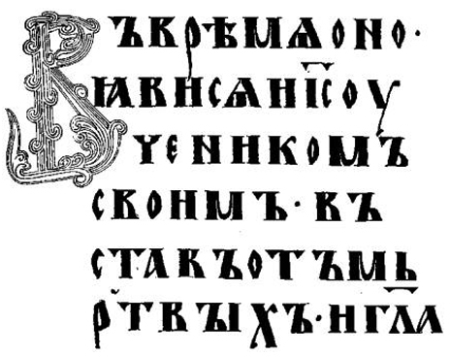 Въ врѣмѧ оно·
ꙗви сѧ и҃с оу
ченикомъ
своимъ· въ
ста въ от ъмь
рт҃выхъ· и гл҃а